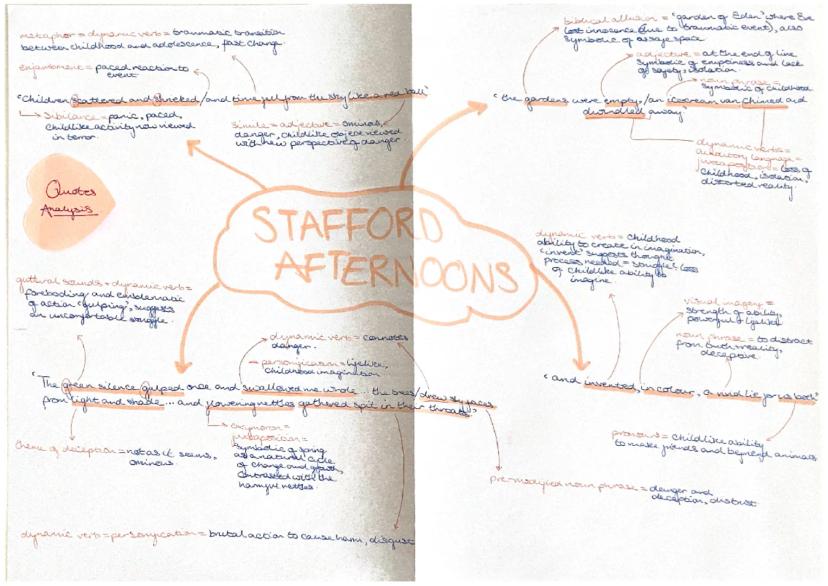 metaphor + dynamic verb = traumatic transition
between childhood and adolescence, fast change.
enjambment = paced reaction to
event
"Children scattered and shrieked/and time fell from the sky like a red ball"
Sibilance = panic, paced,
childlike activity now viewed
in terror.
Simile + adjective = ominous,
danger, childlike object viewed
with new perspective of danger
Quotes
Analysis
biblical allusion = "garden of Eden" where Eve
lost innocence (due to traumatic event), also
symbolic of a safe space
adjective = at the end of line
symbolic of emptiness and lack
of safety, isolation.
noun phrase =
symbolic of childhood
"the gardens were empty/an icecream van chimed and
dwindled away"
dynamic verbs =
auditory language =
juxtaposition = loss of
childhood, isolation,
distorted reality.
STAFFORD
AFTERNOONS
guttural sounds + dynamic verb =
foreboding and emblematic
of action 'gulping', suggests
an uncomfortable struggle.
dynamic verb = connotes
danger.
personification = lifelike,
childhood imagination
"The green silence gulped once and swallowed me whole ... the trees/drew sly faces
from light and shade ... and flowering nettles gathered spit in their throats"
theme of deception = not as it seems,
ominous.
oxymoron =
juxtaposition =
symbolic of spring
as a natural cycle
of change and growth,
contrasted with the
harmful nettles.
dynamic verb = personification = brutal action to cause harm, disgust
pre-modified noun phrase = danger and
deception, distrust
dynamic verb = childhood
ability to create in imagination,
'invent' suggests thought
process needed = struggle = loss
of childlike ability to
imagine.
visual imagery =
strength of ability,
powerful + lifelike
noun phrase = to distract
from truth + reality,
deceptive.
"and invented, in colour, a vivid lie for us both"
pronouns = childlike ability
to make friends and befriend animals